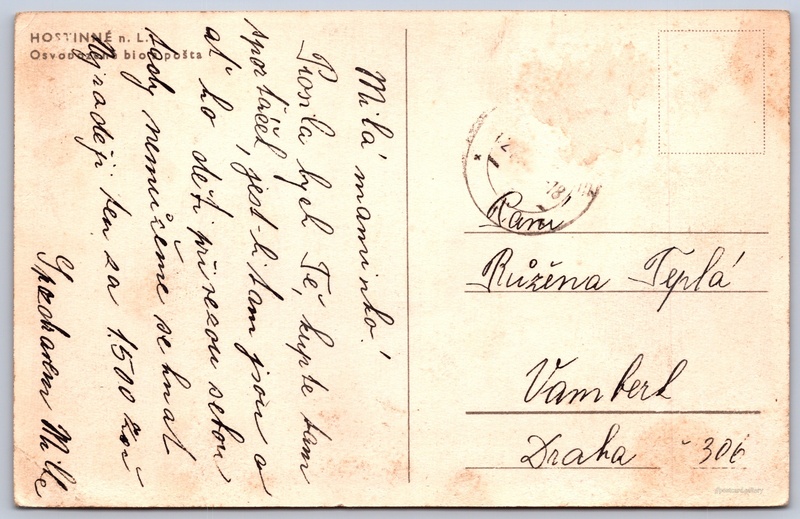 HOSTINNÉ n. L.
Osvobozená bio a pošta
Milá maminko!
Prosla bych Tě, kupte tam
sporáček, jest-li tam jsou a
ať ho děti přivezou sebou
tady nemůžeme se hnat
Nejraději ten za 1.500 Kčs
S pozdravem Mila
Paní
Růžena Teplá
Vamberk
Draha č 306